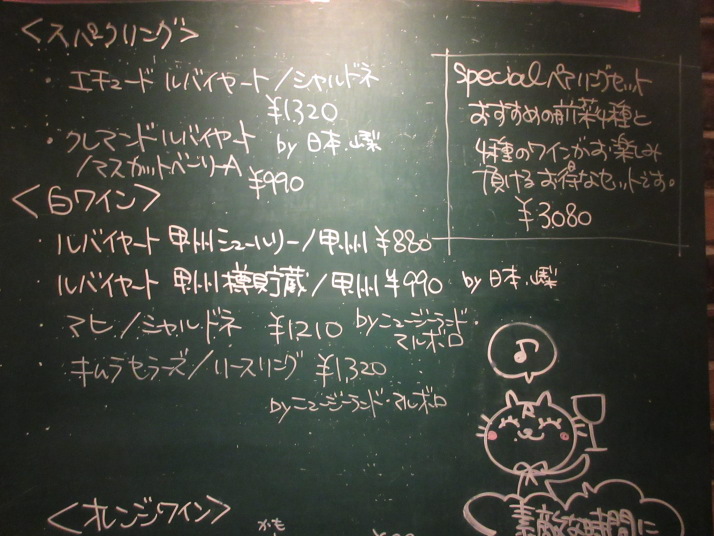 <スパークリング>
・エチュード ルバイヤート/シャルドネ
¥1320
・クレマンドルバイヤート by 日本.山梨
/マスカットベーリーA
¥990
Special ペアリングセット
おすすめの前菜4種と
4種のワインがお楽しみ
頂けるお得なセットです。
¥3.080
<白ワイン>
・ルバイヤート 甲州シュールリー/甲州 ¥880
・ルバイヤート 甲州樽貯蔵/甲州 ¥990 by 日本.山梨
・マヒ/シャルドネ ¥1210 by ニュージーランド・
マルボロ
・キムラセラーズ/リースリング ¥1,320
by ニュージーランド・マルボロ
<オレンジワイン>
かも
素敵な時間に